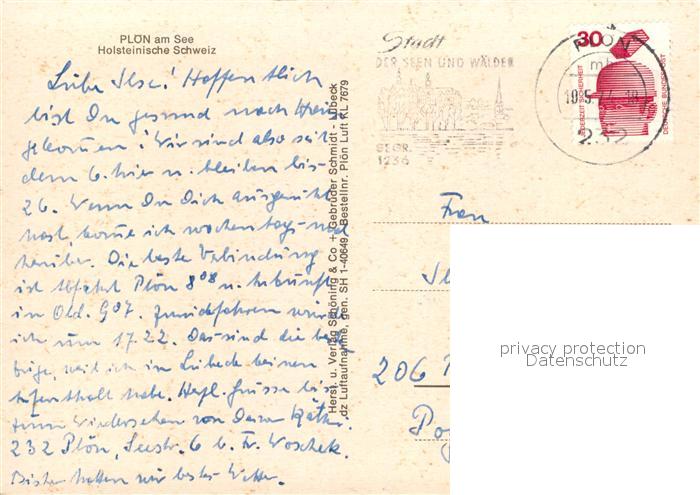 PLÖN am See
Holsteinische Schweiz
Liebe Ilse! Hoffentlich
bist Du gesund nach Hause
gekommen! Wir sind also seit
dem 6. hier u. bleiben bis
26. Wenn Du Dich ausgeruht
hast, komme ich wochentags mal
herüber. Die beste Verbindung
ist Abfahrt Plön 8⁰⁸ u. Ankunft
in Old. 9⁰⁷. Zurückfahren würde
ich um 17.22. Das sind die besten
Züge, weil ich in Lübeck keinen
Aufenthalt habe. Herzl. Grüsse bis
zum Wiedersehen von Deiner Käthe.
232 Plön, Seestr. 6 b. Fr. Woschek.
Bisher hatten wir bestes Wetter.
Herst. u. Verlag Schöning & Co + Gebrüder Schmidt - Lübeck
dz Luftaufnahme, gen. SH 1-40649. / Bestellnr. Plön Luft KL 7679
Stadt
DER SEEN UND WÄLDER
GEGR.
1236
PLÖN
mb
10.5.74-18
232
30
JEDERZEIT SICHERHEIT
DEUTSCHE BUNDESPOST
Frau
206
privacy protection
Datenschutz